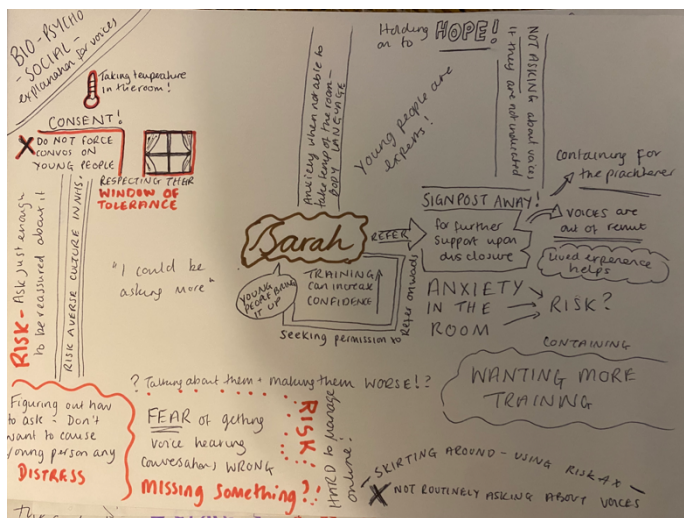 BIO-PSYCHO
-SOCIAL-
explanation for voices
Taking temperature
in the room!
CONSENT!
DO NOT FORCE
CONVOS ON
YOUNG PEOPLE
RESPECTING THEIR
WINDOW OF
TOLERANCE
RISK - Ask just enough
to be reassured about it
RISK AVERSE CULTURE IN NHS.
"I could be
asking more"
Anxiety when not able to
take temp of the room -
BODY LANGUAGE
Holding
on to HOPE!
Young people are
experts!
NOT ASKING about voices
if they are not indicated
Containing for
the practitioner
VOICES are
out of remit
Lived experience
helps
SIGNPOST AWAY!
for further
support upon
disclosure
Sarah
REFER
YOUNG
PEOPLE BRING
IT UP
TRAINING
can increase
CONFIDENCE
Seeking permission to
Refer onwards
ANXIETY
IN THE
ROOM
RISK?
CONTAINING
WANTING MORE
TRAINING
? Talking about them + making them WORSE!?
Figuring out how
to ask - Don't
want to cause
young person any
DISTRESS
FEAR of getting
voice hearing
conversations WRONG
MISSING something?!
RISK
HARD to manage
online!
- SKIRTING AROUND - USING RISK AX -
NOT ROUTINELY ASKING ABOUT VOICES